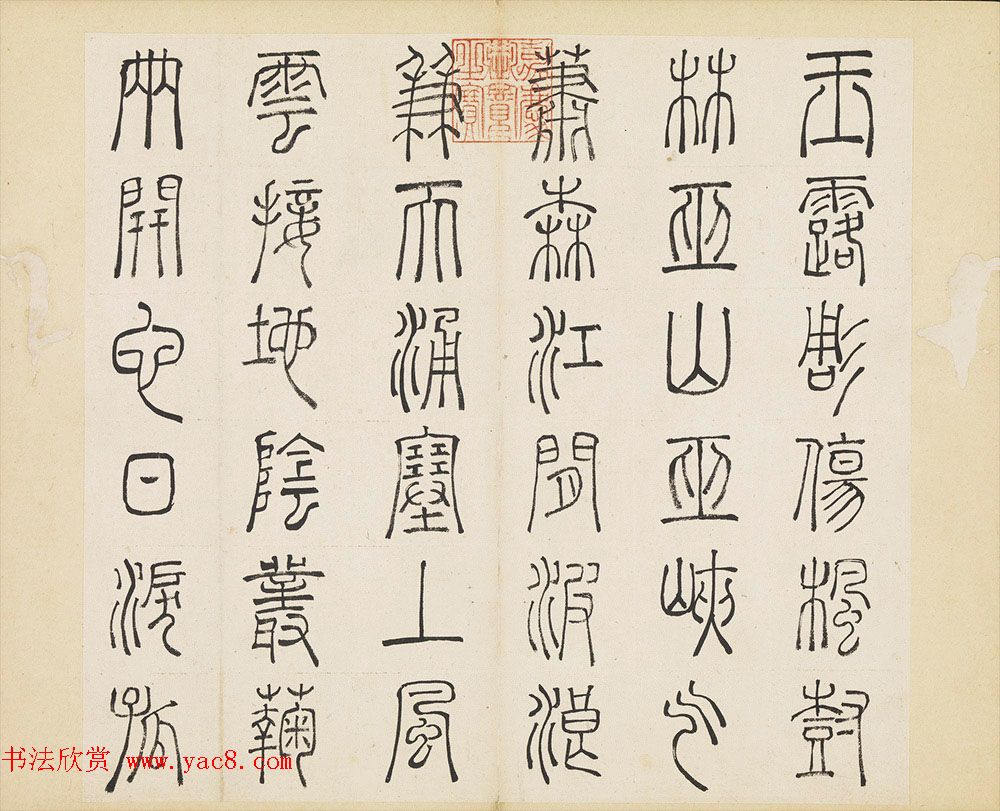 玉露彫傷楓樹
林巫山巫峽气
蕭森江間波浪
兼天涌塞上風
雲接地陰叢菊
兩開他日淚孤
嘉慶御覽之寶
书法欣赏 www.yac8.com